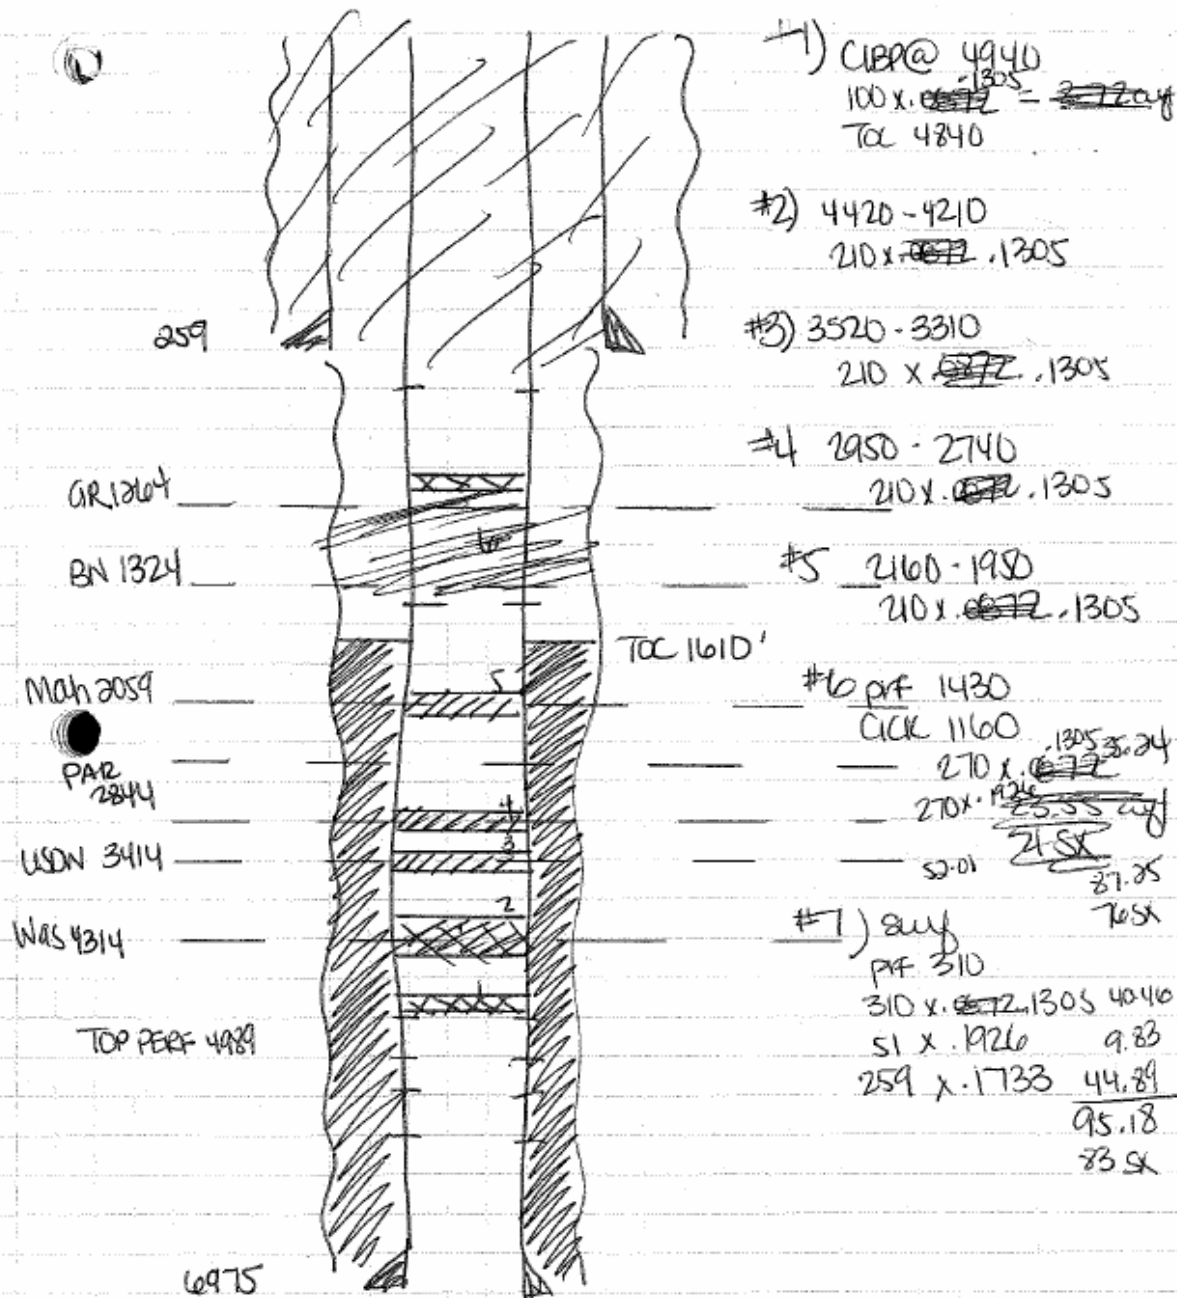 259
GR 1264
BN 1324
TOC 1610'
Mah 2059
PAR
2844
USDN 3414
Was 4314
TOP PERF 4989
6975
6
5
4
3
2
1
#1) CIBP@ 4940
100 x .1305
TOC 4840
#2) 4420 - 4210
210 x .1305
#3) 3520 - 3310
210 x .1305
#4 2950 - 2740
210 x .1305
#5 2160 - 1950
210 x .1305
#6 prf 1430
CICR 1160
270 x .1305 35.24
270 x .1926
52.01
87.25
76 sx
#7) surf
prf 310
310 x .1305 40.46
51 x .1926 9.83
259 x .1733 44.89
95.18
83 sx